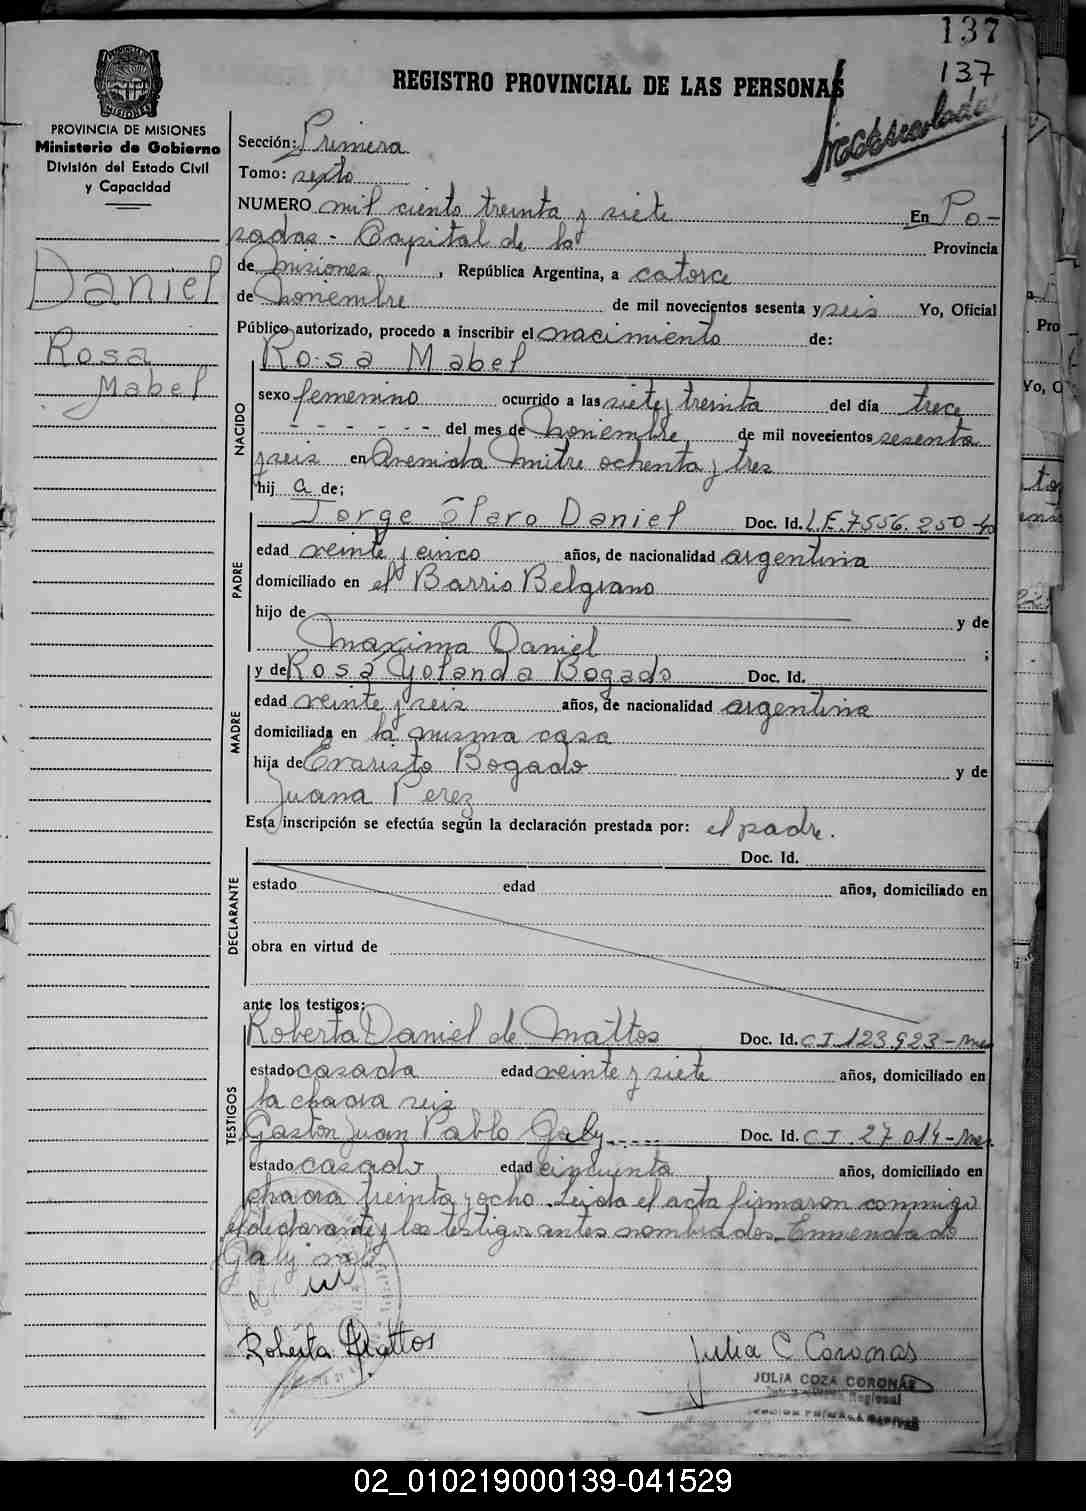 137
137
REGISTRO PROVINCIAL DE LAS PERSONAS
PROVINCIA DE MISIONES
Ministerio de Gobierno
División del Estado Civil
y Capacidad
Daniel
Rosa
Mabel
Sección: Primera
Tomo: sexto
NUMERO mil ciento treinta y siete En Po-
sadas - Capital de la Provincia
de Misiones, República Argentina, a catorce
de Noviembre de mil novecientos sesenta y seis Yo, Oficial
Público autorizado, procedo a inscribir el nacimiento de:
Rosa Mabel
NACIDO
sexo femenino ocurrido a las siete y treinta del día trece
- - - - - - del mes de Noviembre de mil novecientos sesenta
y seis en Avenida Mitre ochenta y tres
hij a de;
PADRE
Jorge Claro Daniel Doc. Id. L.E. 7556.250-
edad veinte y cinco años, de nacionalidad argentina
domiciliado en el Barrio Belgrano
hijo de y de
Maxima Daniel ;
MADRE
y de Rosa Yolanda Bogado Doc. Id.
edad veinte y seis años, de nacionalidad argentina
domiciliada en la misma casa
hija de Evaristo Bogado y de
Juana Perez
Esta inscripción se efectúa según la declaración prestada por: el padre.
DECLARANTE
Doc. Id.
estado edad años, domiciliado en
obra en virtud de
ante los testigos:
TESTIGOS
Roberta Daniel de Mattos Doc. Id. C.I. 123.923-Mes
estado casada edad veinte y siete años, domiciliado en
la chacra seis
Gastón Juan Pablo Galy Doc. Id. C.I. 27.014-Mes.
estado casado edad cincuenta años, domiciliado en
chacra treinta y ocho. Leida el acta firmaron conmigo
el declarante y los testigos antes nombrados. Enmendado
Galy vale
Roberta Mattos
Julia C Coronas
JULIA COZA CORONAS
02_010219000139-041529